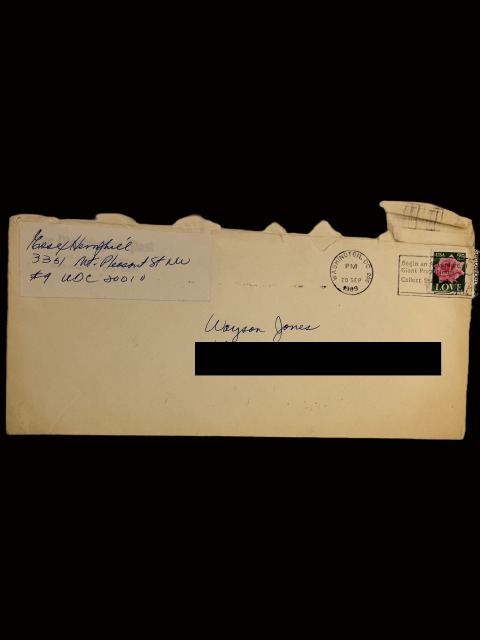 Essex Hemphill
3351 Mt. Pleasant St NW
#9 WDC 20010
WASHINGTON, DC
PM
20 SEP
1989
Begin an
Giant
Collect
USA 25
LOVE
Wayson Jones